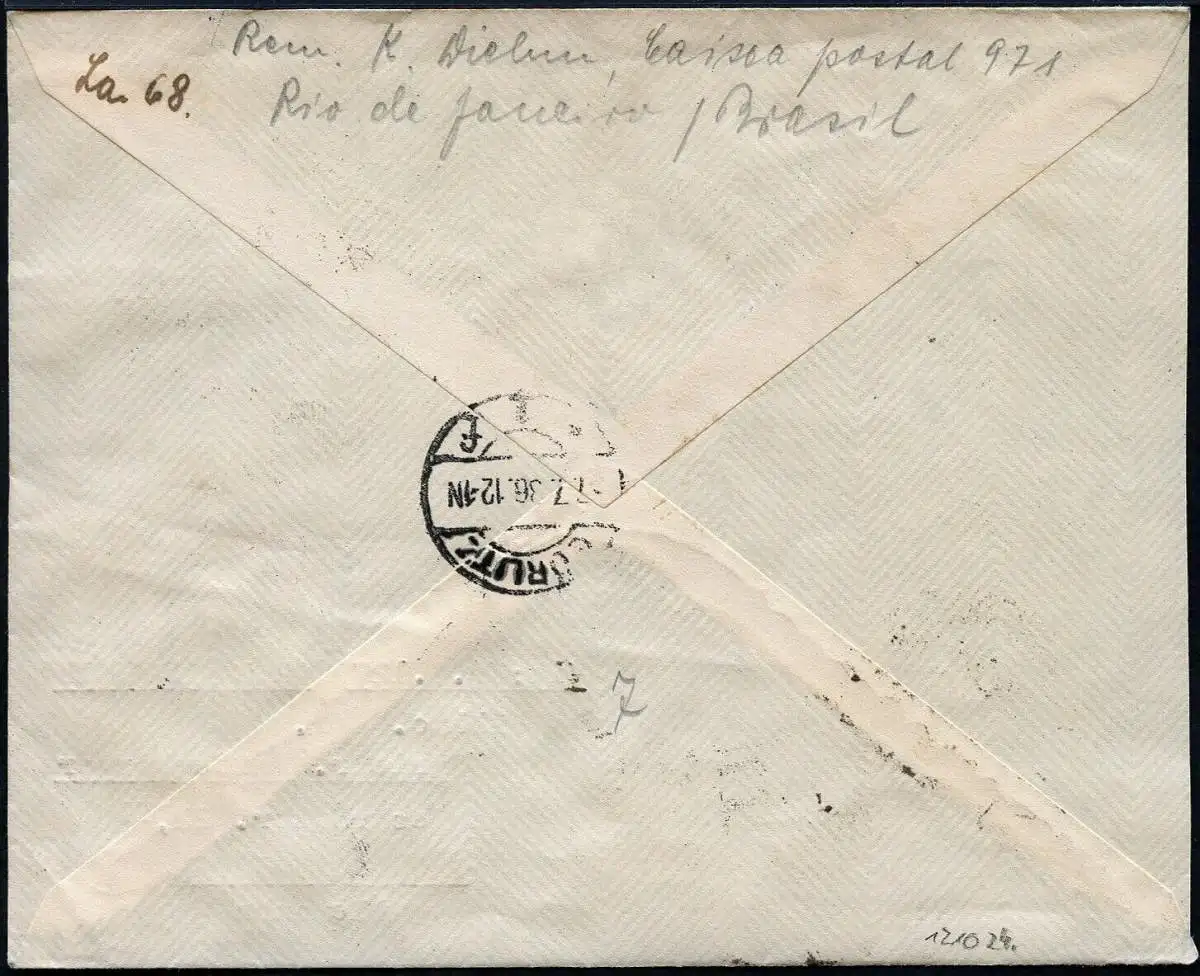 Rem. K. Diehm, Caixa postal 971
Rio de Janeiro / Brasil
La. 68.
f
7.7.36.12-1N
7
121024.